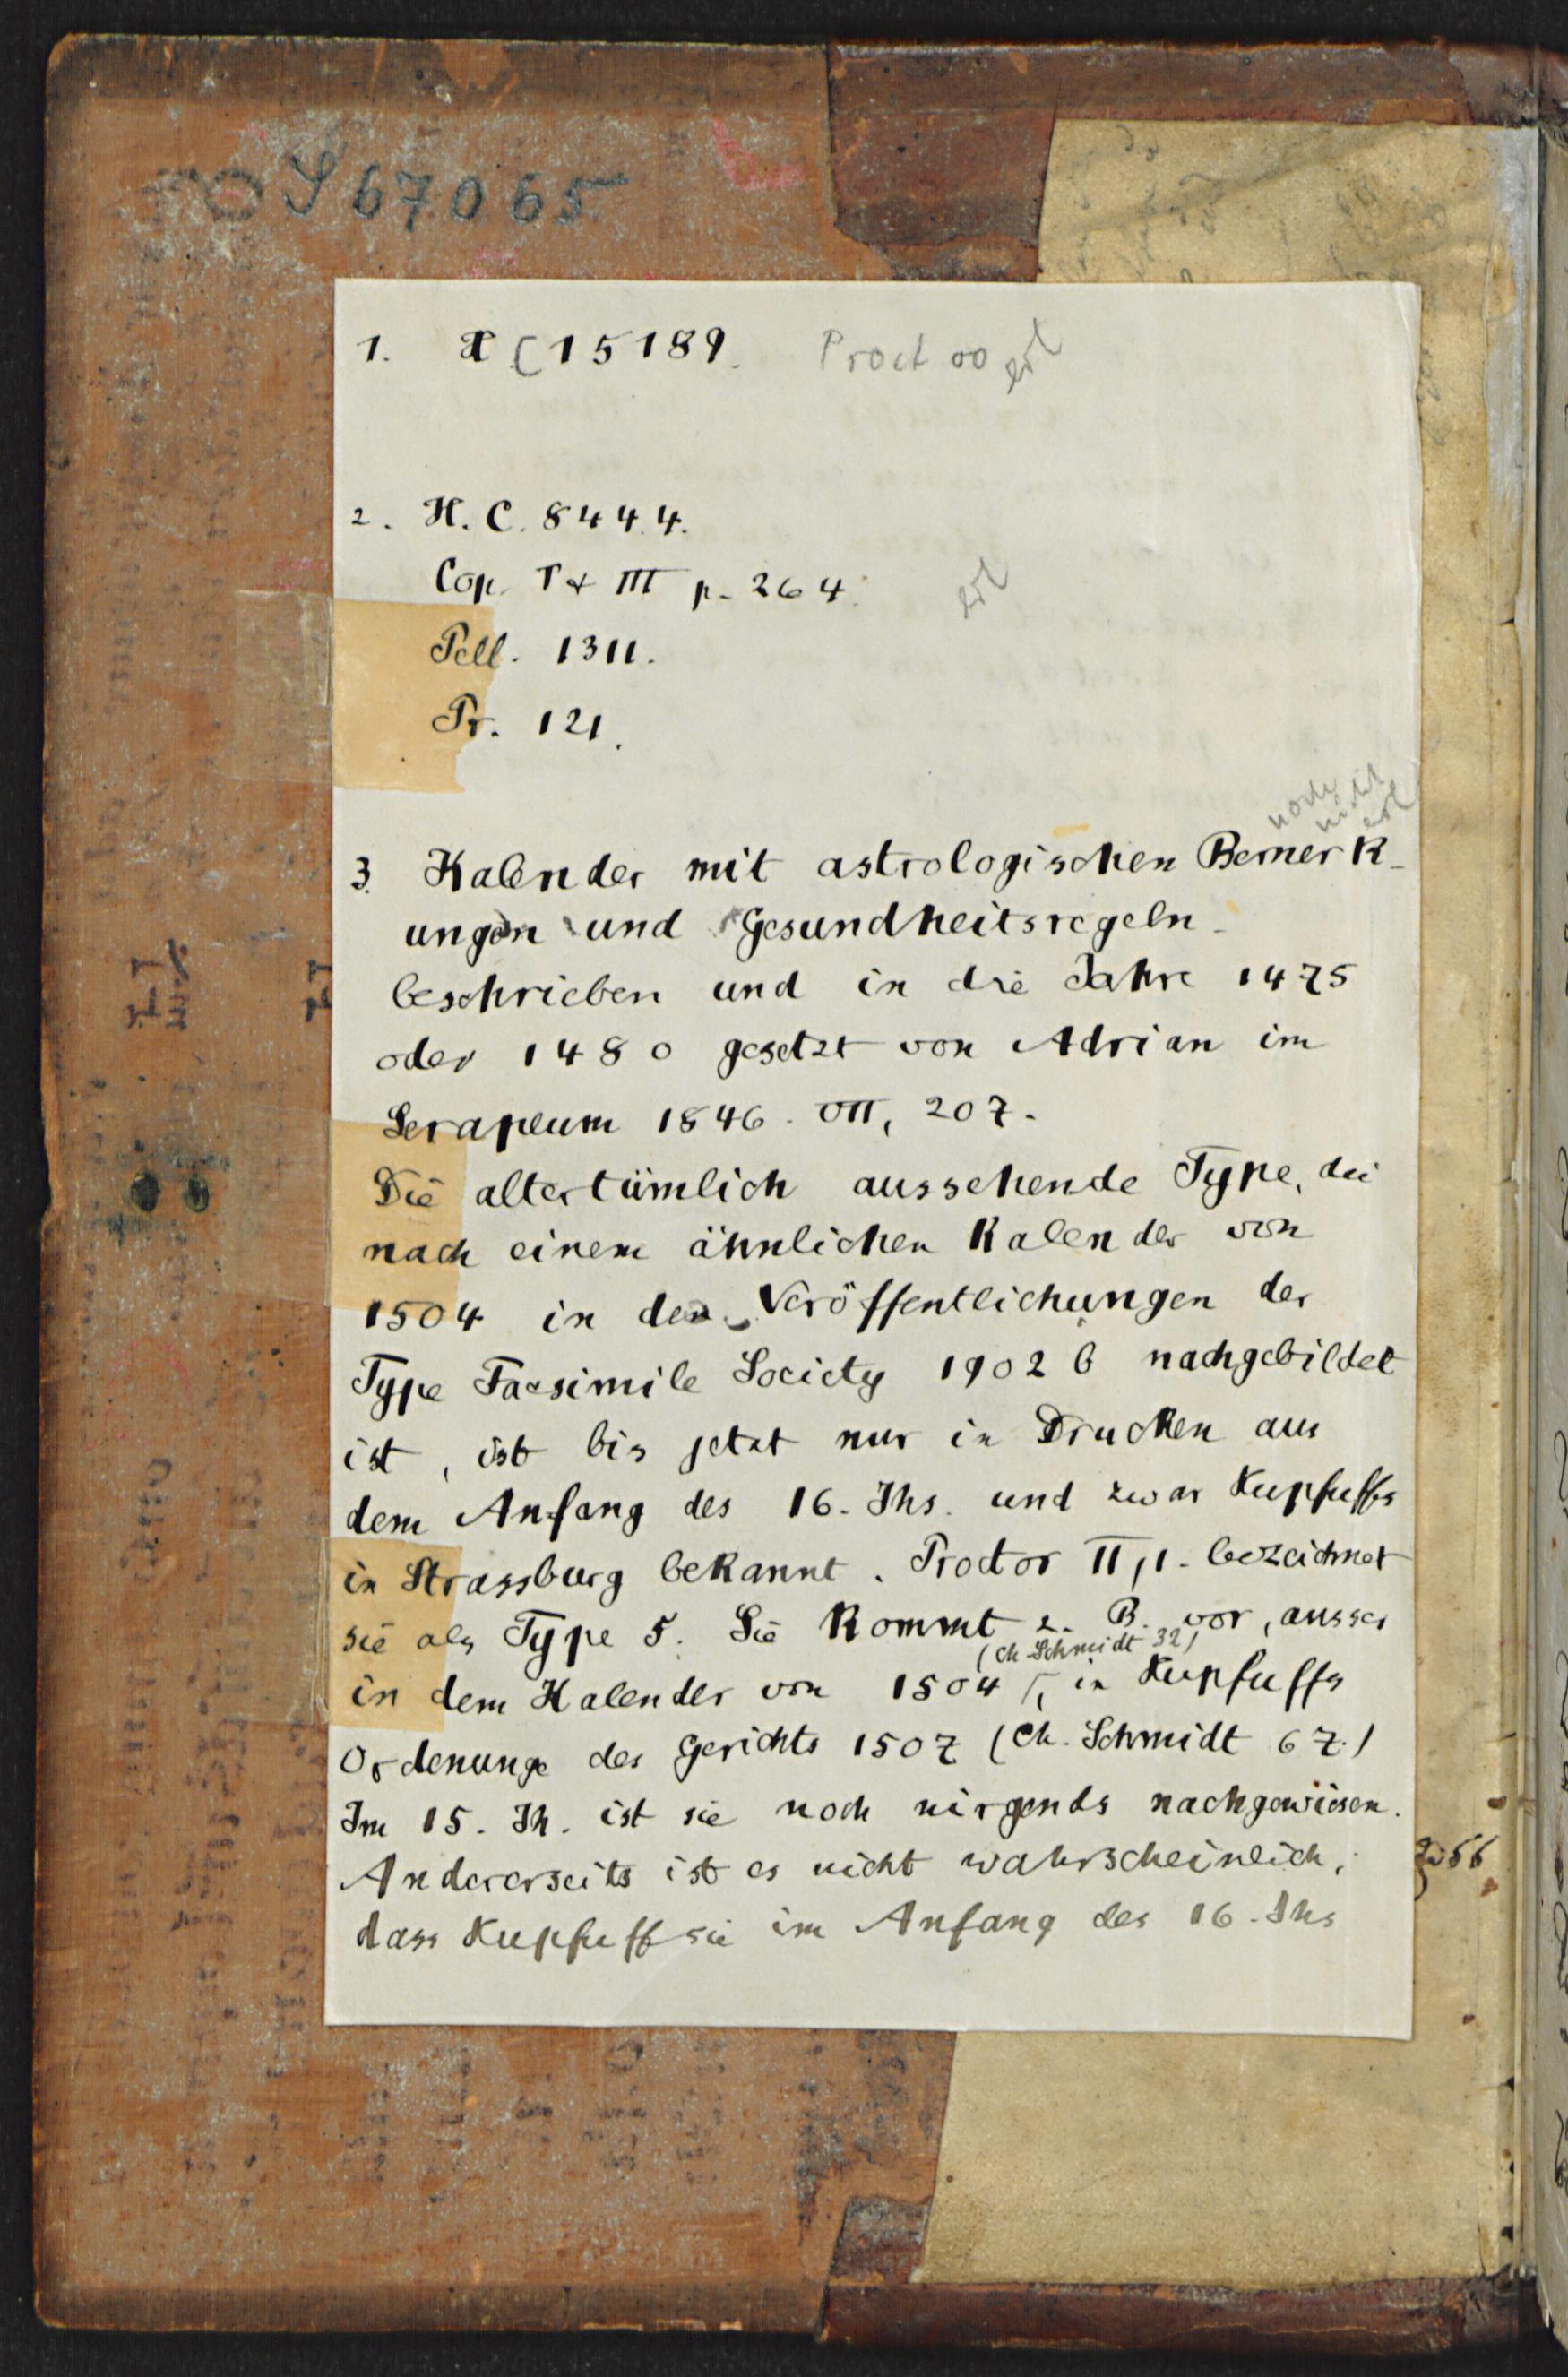 S 67065
1. H C 15189. Proct 00 erl
2. H. C. 8444.
Cop. T + III p. 264. erl
Pell. 1311.
Pr. 121.
noch nicht erl
3. Kalender mit astrologischen Bemerk-
ungen und Gesundheitsregeln.
beschrieben und in die Jahre 1475
oder 1480 gesetzt von Adrian im
Serapeum 1846. VII, 207.
Die altertümlich aussehende Type, die
nach einem ähnlichen Kalender von
1504 in den Veröffentlichungen der
Type Facsimile Society 1902 b nachgebildet
ist, ist bis jetzt nur in Drucken aus
dem Anfang des 16. Jhs. und zwar Kupfuffs
in Strassburg bekannt. Proctor II, 1. bezeichnet
sie als Type 5. Sie kommt z. B. vor, ausser
(Ch Schmidt 32)
in dem Kalender von 1504, in Kupfuffs
Ordenunge des Gerichts 1507 (Ch. Schmidt 67.)
Im 15. Jh. ist sie noch nirgends nachgewiesen.
Andererseits ist es nicht wahrscheinlich,
dass Kupfuff sie im Anfang des 16. Jhs